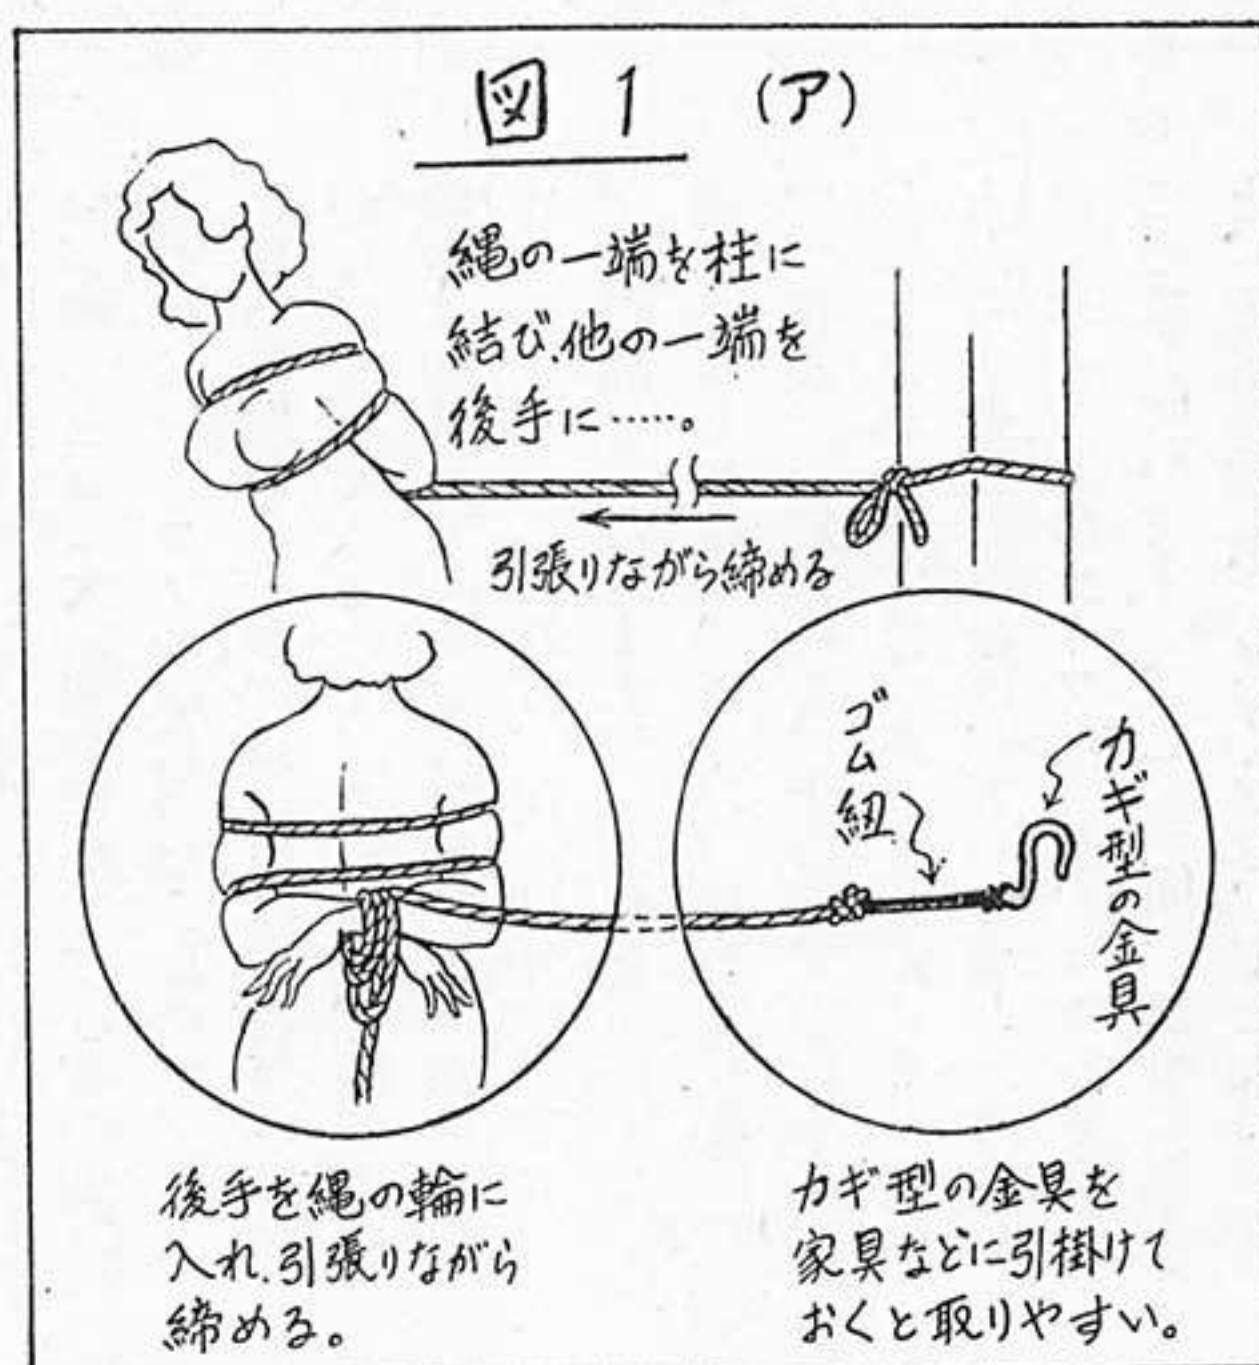 図1 (ア)
縄の一端を柱に
結び、他の一端を
後手に……。
引張りながら締める
ゴム紐
カギ型の金具
後手を縄の輪に
入れ、引張りながら
締める。
カギ型の金具を
家具などに引掛けて
おくと取りやすい。